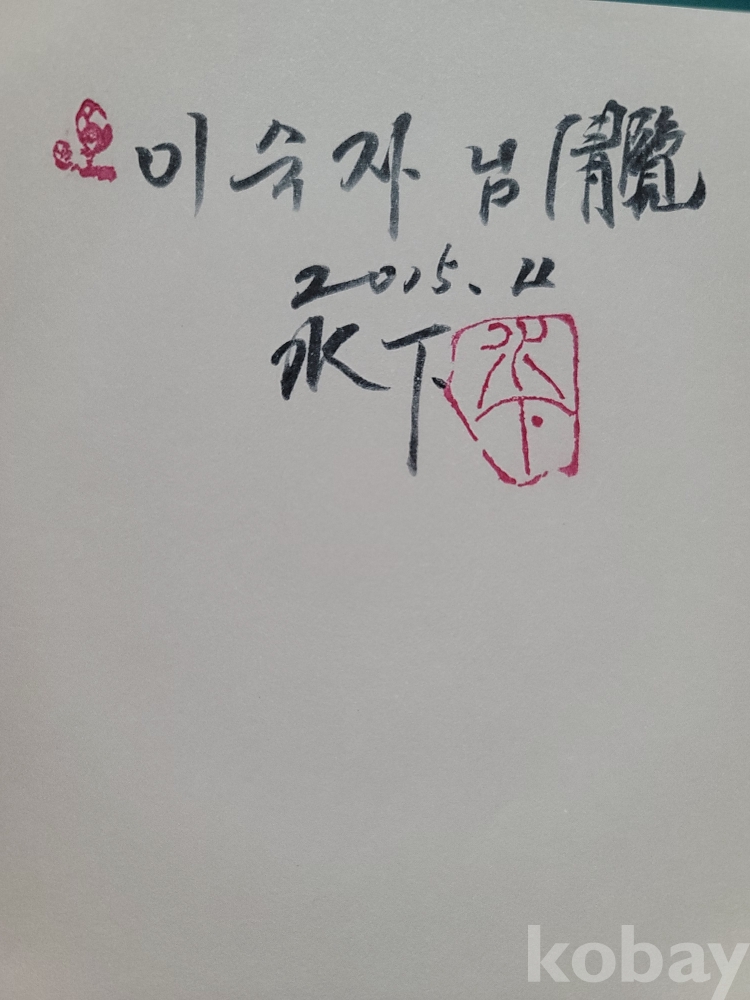 이숙자 님 淸覽
2015. 11
水下
水下
kobay